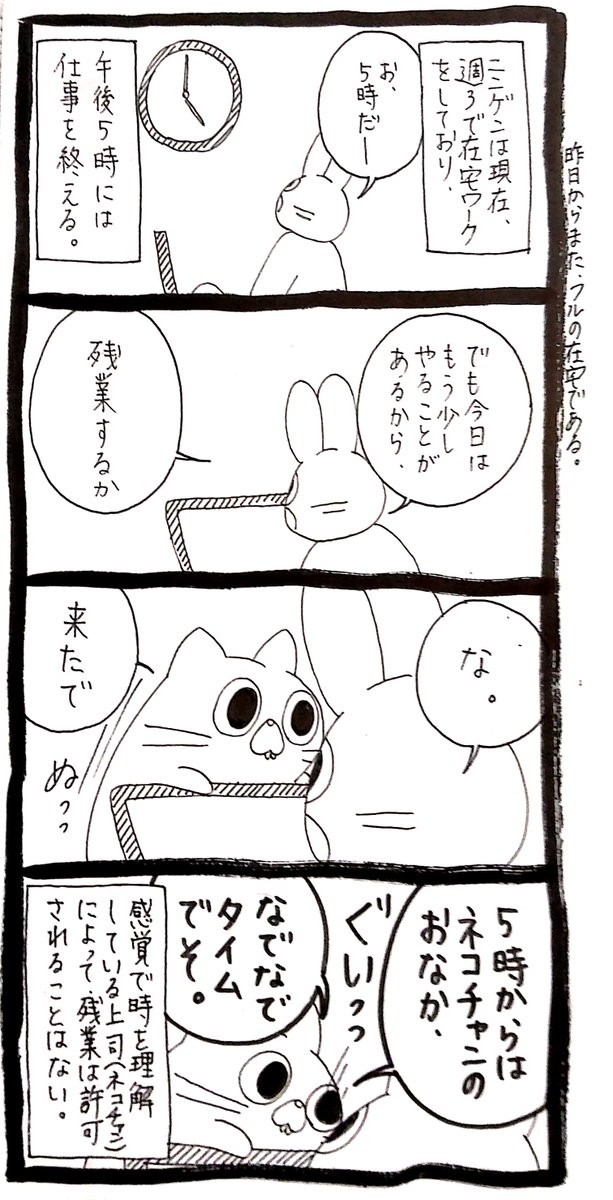 昨日からまた、フルの在宅である。
ニンゲンは現在、
週3で在宅ワーク
をしており、
お、
5時だー
午後5時には
仕事を終える。
でも今日は
もう少し
やることが
あるから、
残業するか
な。
来たで
ぬっっ
5時からは
ネコチャンの
おなか、
ぐいっっ
なでなで
タイム
でそ。
感覚で時を理解
している上司(ネコチャン)
によって、残業は許可
されることはない。